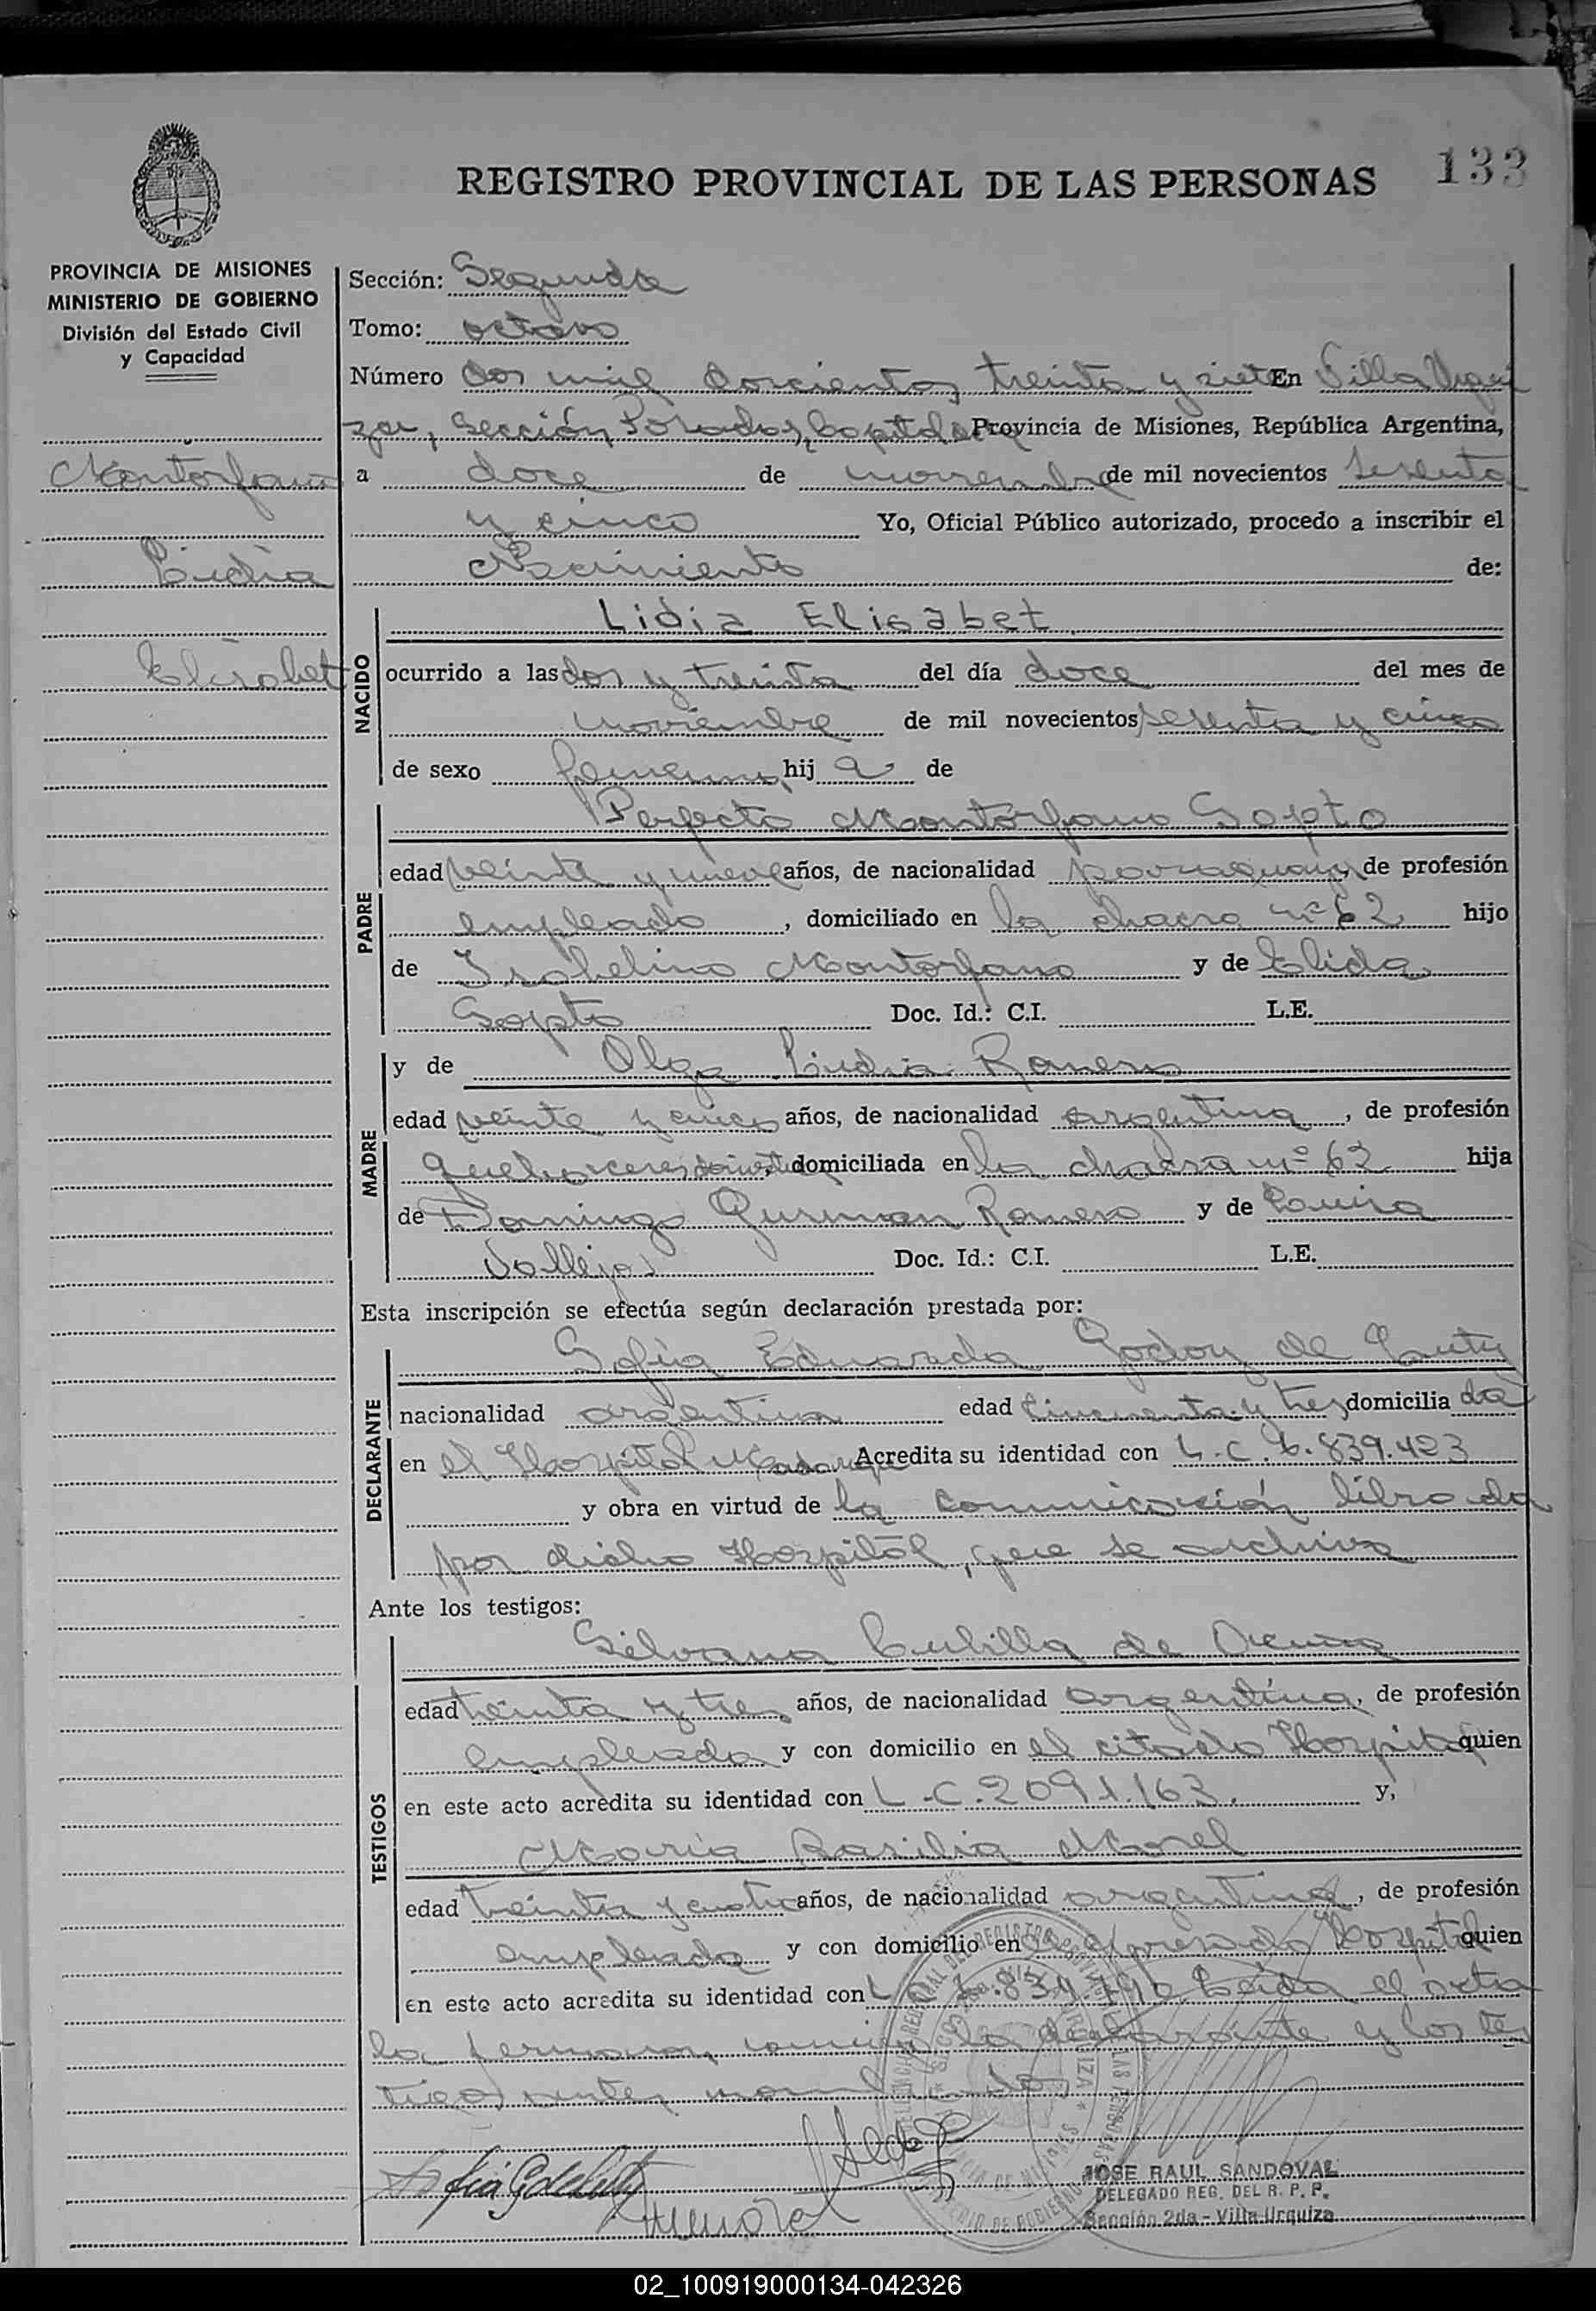 133
REGISTRO PROVINCIAL DE LAS PERSONAS
PROVINCIA DE MISIONES
MINISTERIO DE GOBIERNO
División del Estado Civil
y Capacidad
Montorfano
Lidia
Elisabet
Sección: Segunda
Tomo: octavo
Número dos mil doscientos treinta y siete En Villa Urqui
za, Sección Posadas, Capital Provincia de Misiones, República Argentina,
a doce de noviembre de mil novecientos sesenta
y cinco Yo, Oficial Público autorizado, procedo a inscribir el
Nacimiento de:
NACIDO
Lidia Elisabet
ocurrido a las dos y treinta del día doce del mes de
noviembre de mil novecientos sesenta y cinco
de sexo femenino, hij a de
PADRE
Perfecto Montorfano Sopto
edad veinte y nueve años, de nacionalidad paraguaya, de profesión
empleado, domiciliado en la chacra nº 62 hijo
de Isabelino Montorfano y de Elida
Sopto Doc. Id.: C.I. L.E.
MADRE
y de Olga Lidia Romero
edad veinte y cinco años, de nacionalidad argentina, de profesión
quehaceres domést. domiciliada en la chacra nº 62 hija
de Domingo Gusman Romero y de
Vallejos Doc. Id.: C.I. L.E.
Esta inscripción se efectúa según declaración prestada por:
DECLARANTE
Sofia Eduarda Godoy de
nacionalidad argentina edad cincuenta y tres domicilia da
en el Hospital Madariaga Acredita su identidad con L.C. 6.839.423
y obra en virtud de la comunicación librada
por dicho Hospital, que se archiva
Ante los testigos:
TESTIGOS
Silvana Cubilla de
edad treinta y tres años, de nacionalidad argentina, de profesión
empleada y con domicilio en el citado Hospital quien
en este acto acredita su identidad con L.C. 2091.163. y,
María Basilia Morel
edad treinta y cuatro años, de nacionalidad argentina, de profesión
empleada y con domicilio en el expresado Hospital quien
en este acto acredita su identidad con L Leida el acta
la firman conmigo la declarante y los tes
tigos antes
JOSE RAUL SANDOVAL
DELEGADO REG. DEL R. P. P.
Sección 2da - Villa Urquiza
02_100919000134-042326